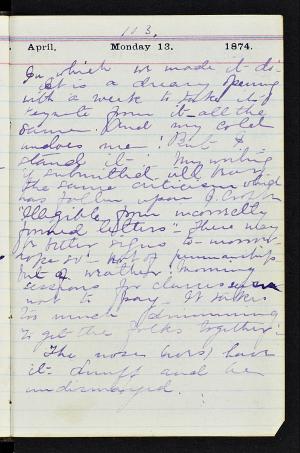 113.
April, Monday 13. 1874.
In which we made it do.
It is a dreary opening
with a week to take its
keynote from it all the
same. And my cold
undoes me! But I
stands it. My writing
if submitted will have
the same criticism which
has fallen upon
"Illegible from incorrectly
formed letters". There may
be better signs to-morrow
not of penmanship
but of weather! Morning
sessions for classes
not to pay. It takes
too much drumming
to get the folks together!
The nose have
it snuff and be
undismayed.